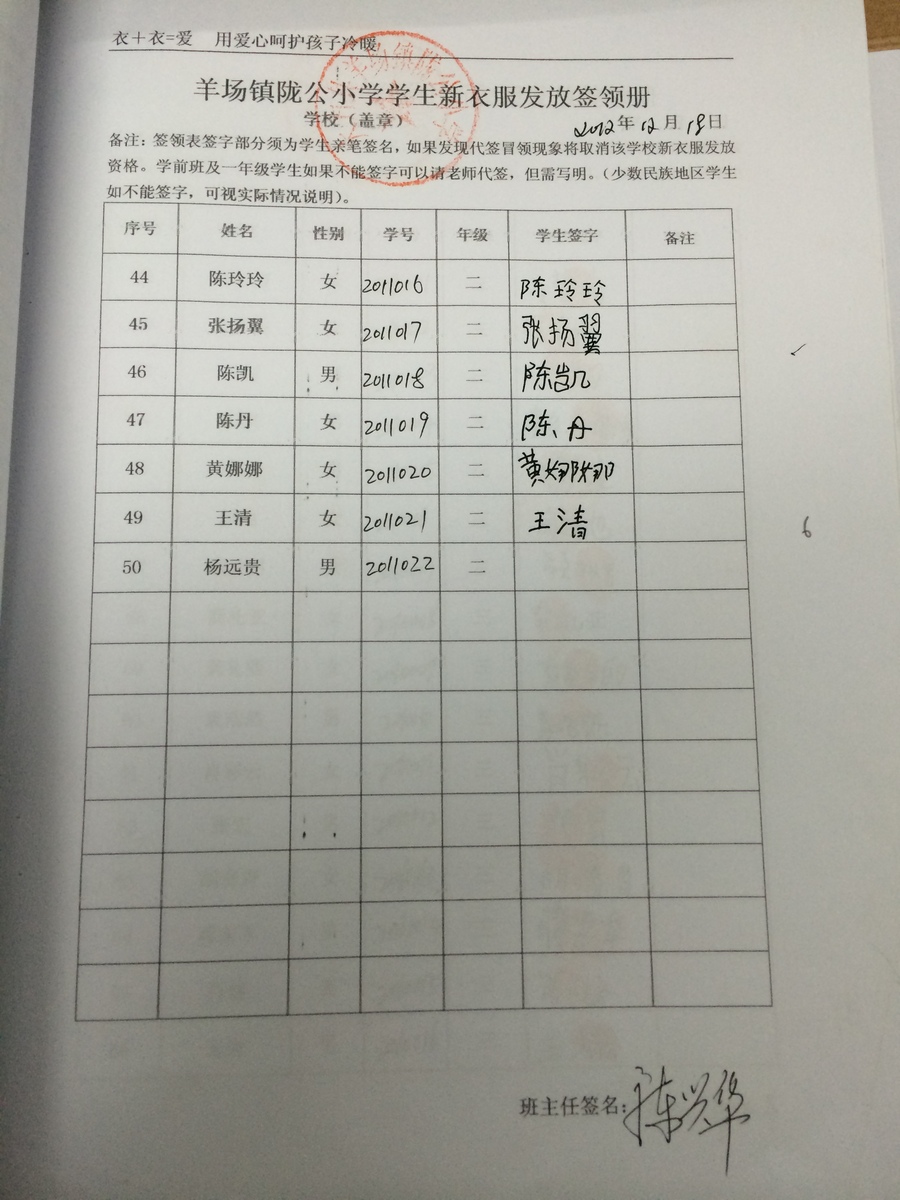 衣+衣=爱 用爱心呵护孩子冷暖
羊场镇陇公小学学生新衣服发放签领册
学校（盖章） 2012年12月18日
备注：签领表签字部分须为学生亲笔签名，如果发现代签冒领现象将取消该学校新衣服发放
资格。学前班及一年级学生如果不能签字可以请老师代签，但需写明。（少数民族地区学生
如不能签字，可视实际情况说明）。
序号 姓名 性别 学号 年级 学生签字 备注
44 陈玲玲 女 2011016 二 陈玲玲
45 张扬翼 女 2011017 二 张扬翼
46 陈凯 男 2011018 二 陈凯
47 陈丹 女 2011019 二 陈丹
48 黄娜娜 女 2011020 二 黄娜娜
49 王清 女 2011021 二 王清
6
50 杨远贵 男 2011022 二
班主任签名：陈兴华